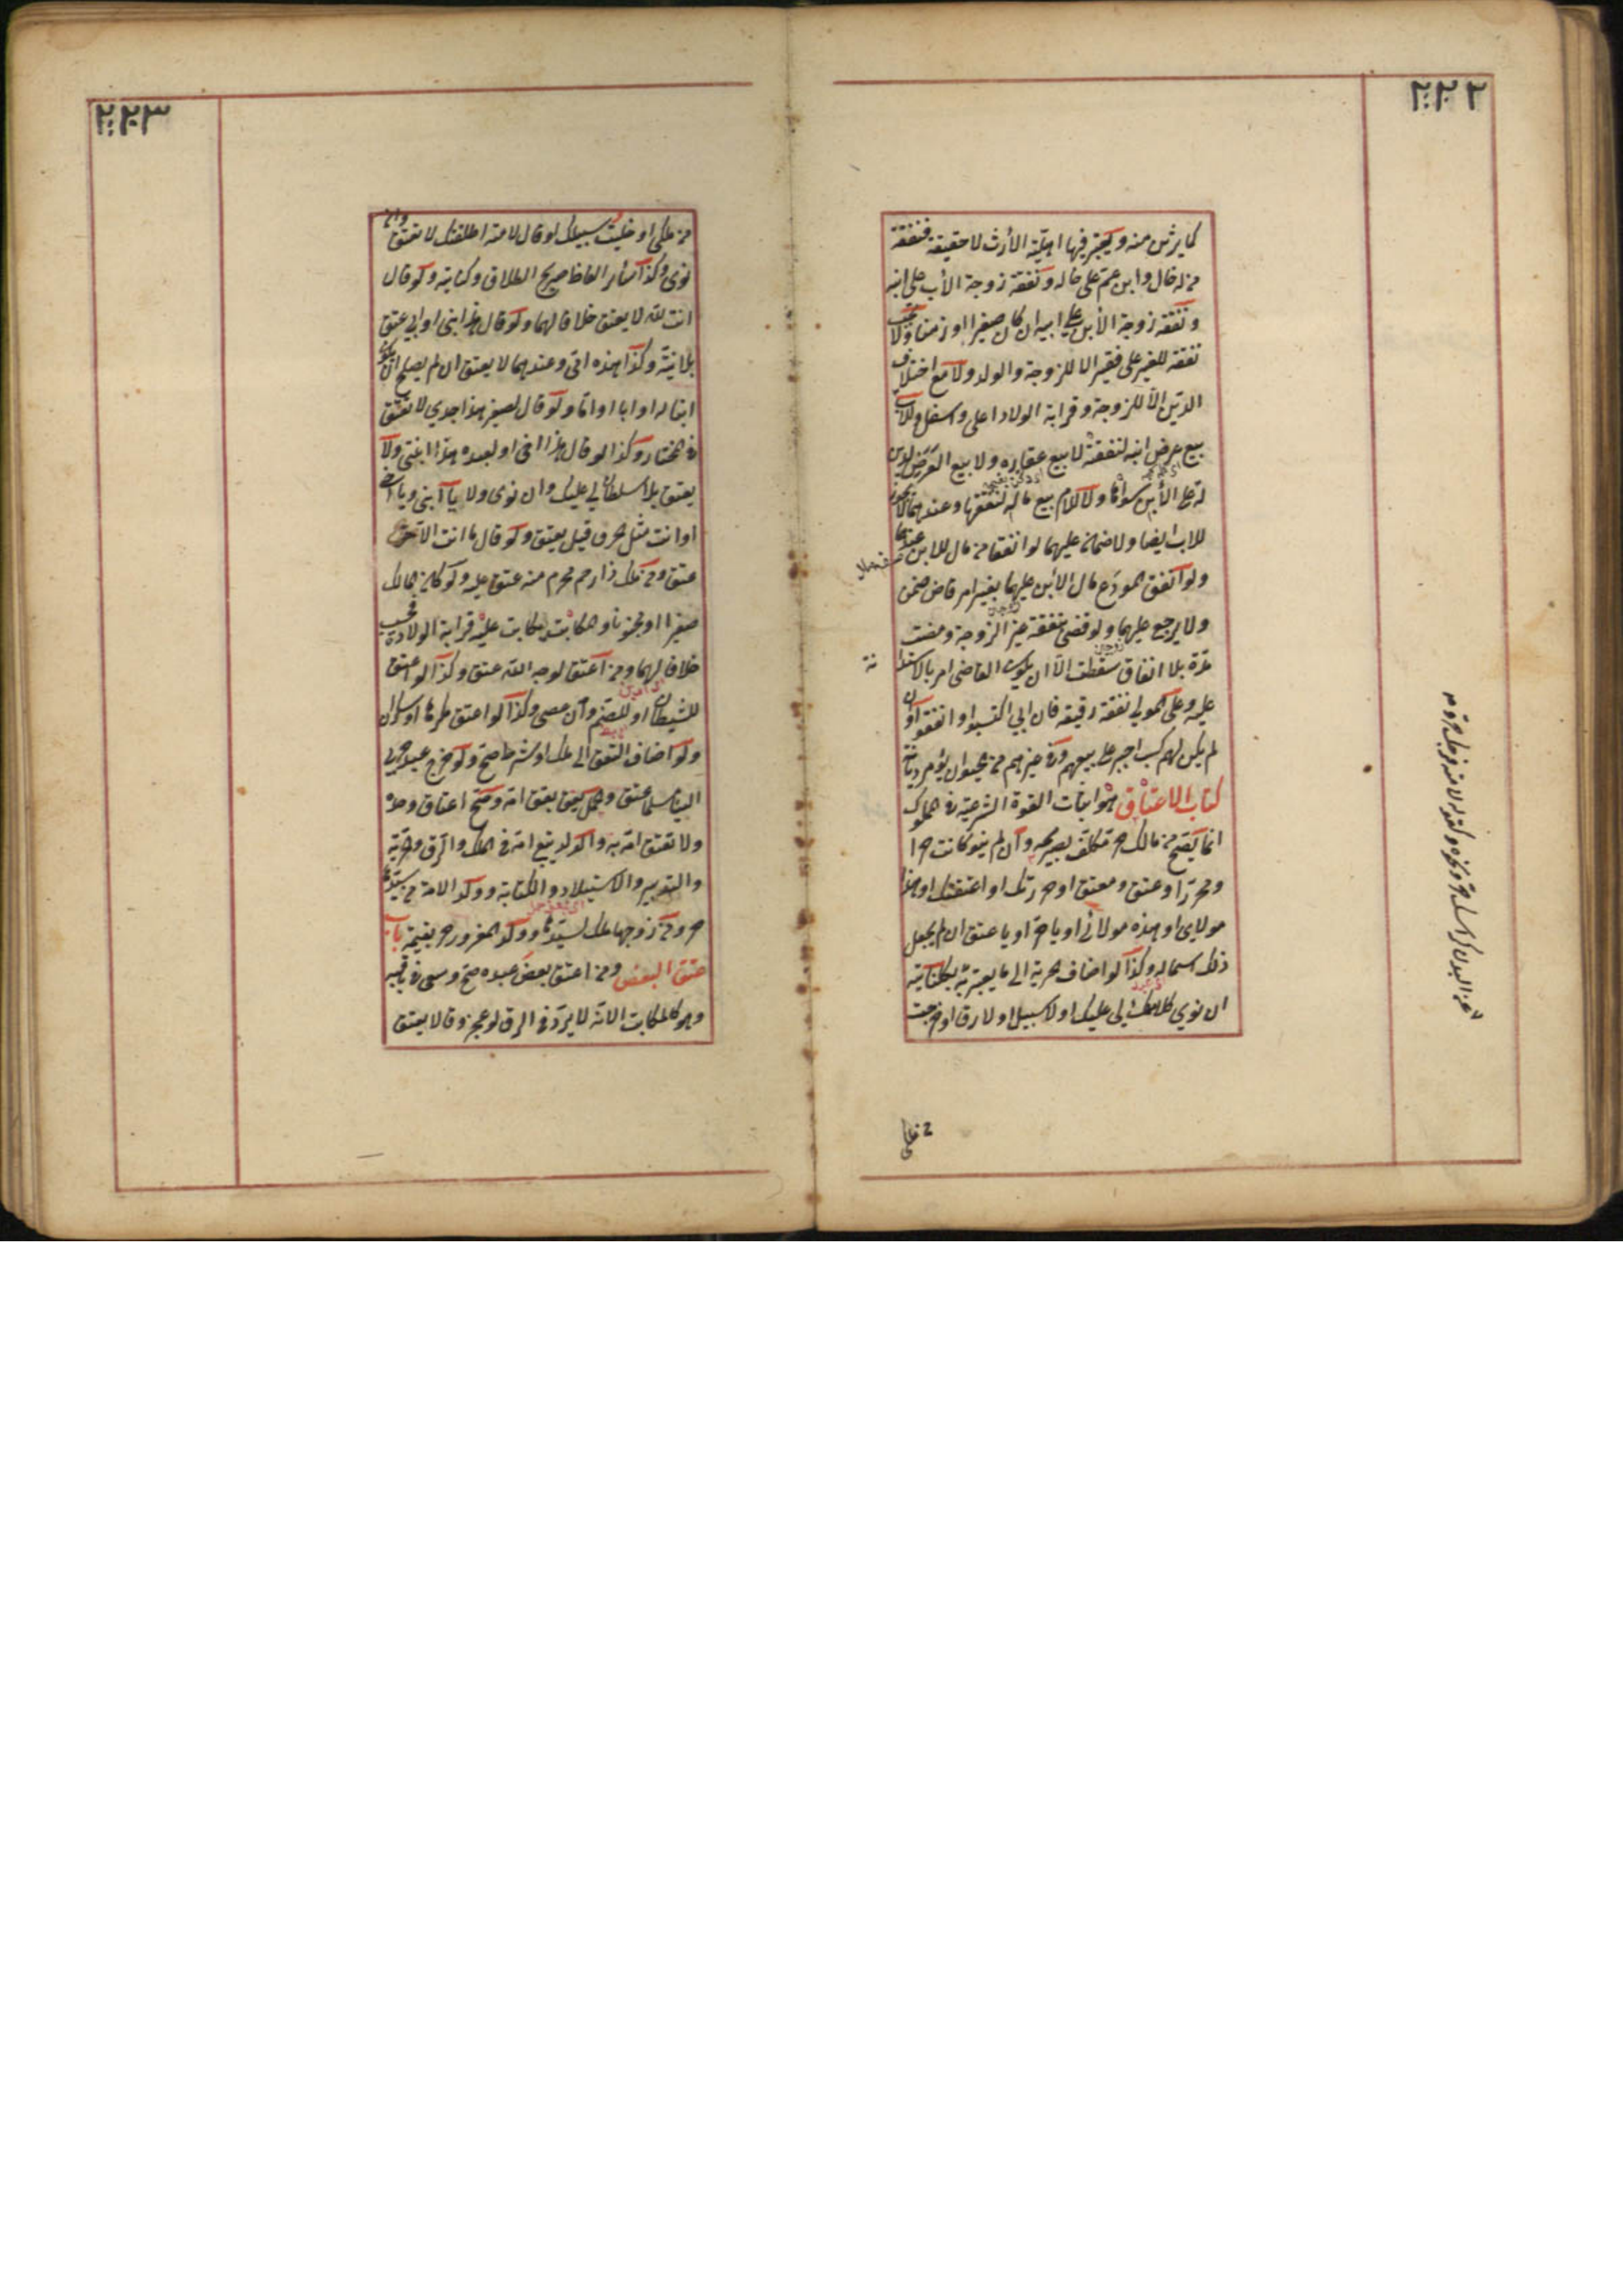 ٢٢٢
كما يرث منه ويعتبر فيها اهلية الأرث لا حقيقته فنفقة
من له خال وابن عم على خاله ونفقة زوجة الأب على ابنه
ونفقة زوجة الأبن على ابيه ان كان صغيرا او زمنا ولا تجب
نفقة للغير على فقير الا للزوجة والولد ولا مع اختلاف
الدين الا للزوجة وقرابة الولاد اعلى واسفل وللاب
بيع عرض ابنه لنفقته لا بيع عقاره ولا بيع العرض لدين
له على الأبن سواها ولا للام بيع ماله لنفقتها وعندهما لا يجوز
للاب ايضا ولا ضمان عليهما لو انفقا من مال للابن عندهما
ولو انفق المودع مال الأبن عليهما بغير امر قاض ضمن
ولا يرجع عليهما ولو قضى بنفقة غير الزوجة ومضت
مدة بلا انفاق سقطت الا ان يكون القاضي امر بالاستدا
نة
عليه وعلى المولى نفقة رقيقه فان ابى اكتسبوا وانفقوا وان
لم يكن لهم كسب اجبر على بيعهم وفي غيرهم من الحيوان يؤمر ديانة
كتاب الاعتاق هو اثبات القوة الشرعية في المملوك
انما يصح من مالك حر مكلف بصريحه وان لم ينو كانت حر ا
ومحرر او عتق ومعتق او حررتك او اعتقتك او هذا
مولاى او هذه مولاتي او يا حر او يا عتيق ان لم يجعل
ذلك اسما له وكذا لو اضاف الحرية الى ما يعبر به وبكنايته
ان نوى كلا ملك لى عليك او لا سبيل او لا رق او خرجت
من ملكى
٢٢٣
من ملكى او خليت سبيلك او قال لامته اطلقتك لا تعتق وان
نوى وكذا سائر الفاظ صريح الطلاق وكنايته ولو قال
انت لله لا يعتق خلافا لهما ولو قال هذا ابنى او ابى عتق
بلا نية وكذا هذه امى وعندهما لا يعتق ان لم يصلح ان يكون
ابنا له او ابا او اما ولو قال لصغير هذا جدي لا يعتق
في المختار وكذا لو قال هذا اخى او لعبده هذا ابنتى ولا
يعتق بلا سلطان لى عليك وان نوى ولا يا ابنى ويا اخى
او انت مثل الحر وقيل يعتق ولو قال ما انت الا حر
عتق ومن ملك ذا رحم محرم منه عتق عليه ولو كان المالك
صغيرا او مجنونا والمكاتب يتكاتب عليه قرابة الولاد فحسب
خلافا لهما ومن اعتق لوجه الله عتق وكذا لو اعتق
للشيطان او للصنم وان عصى وكذا لو اعتق مكرها او سكران
ولو اضاف العتق الى ملك او شرط صح ولو خرج عبد حربي
الينا مسلما عتق والحمل يعتق بعتق امه وصح اعتاقه وحده
ولا تعتق امه به والولد يتبع امه في الملك والرق والحرية
والتدبير والاستيلاد والكتابة وولد الامة من سيدها
حر ومن زوجها ملك لسيدها وولد المغرور حر بقيمته باب
عتق البعض ومن اعتق بعض عبده صح وسعى في باقيه
وهو كالمكاتب الا انه لا يرد في الرق لو عجز وقالا يعتق